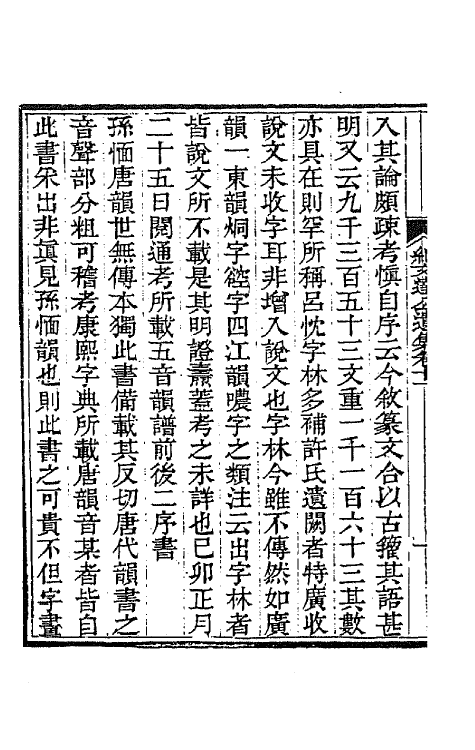 入其論頗疎考愼自序云今敘篆文合以古籀其語甚
明又云九千三百五十三文重一千一百六十三其數
亦具在則罕所稱呂忱字林多補許氏遺闕者特廣收
說文未收字耳非增入說文也字林今雖不傳然如廣
韻一東韻烔字谾字四江韻噥字之類注云出字林者
皆說文所不載是其明證燾蓋考之未詳也己卯正月
二十五日閱通考所載五音韻譜前後二序書
孫愐唐韻世無傳本獨此書備載其反切唐代韻書之
音聲部分粗可稽考康熙字典所載唐韻音某者皆自
此書采出非眞見孫愐韻也則此書之可貴不但字畫